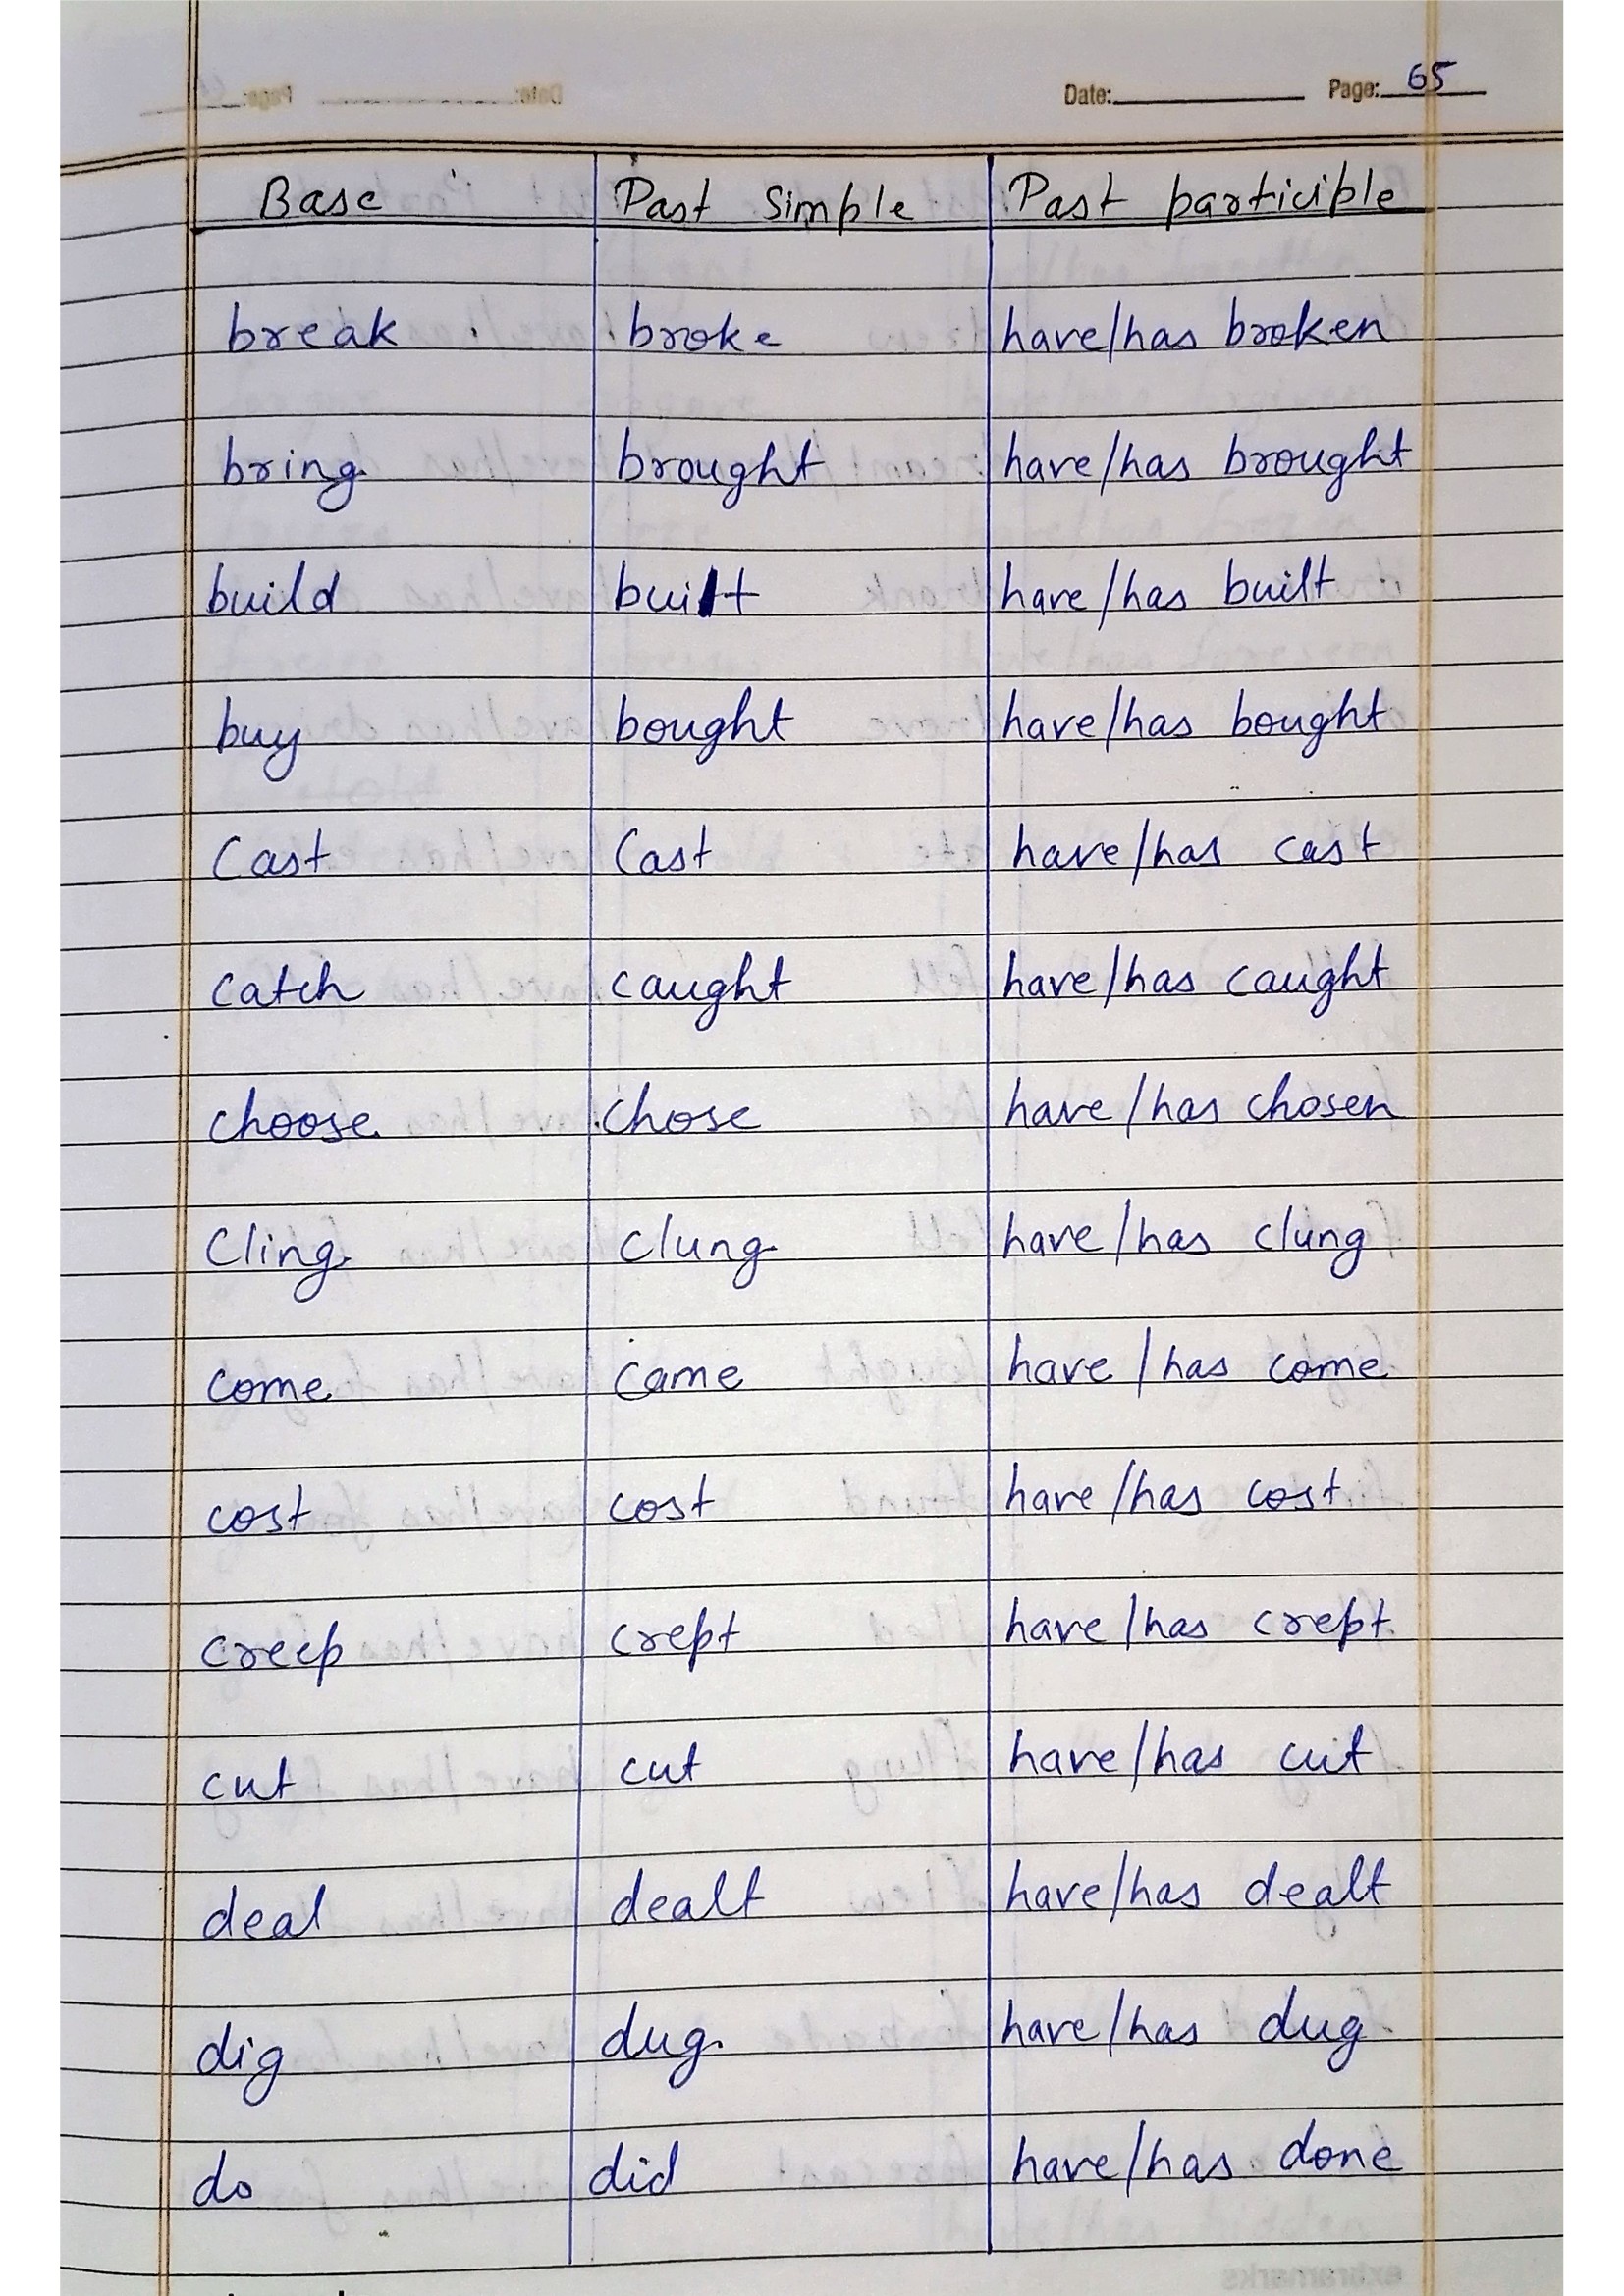 Date: Page: 65
Base Past Simple Past participle
break broke have/has broken
bring brought have/has brought
build built have/has built
buy bought have/has bought
Cast Cast have/has cast
catch caught have/has caught
choose chose have/has chosen
Cling clung have/has clung
come came have/has come
cost cost have/has cost
creep crept have/has crept
cut cut have/has cut
deal dealt have/has dealt
dig dug have/has dug
do did have/has done